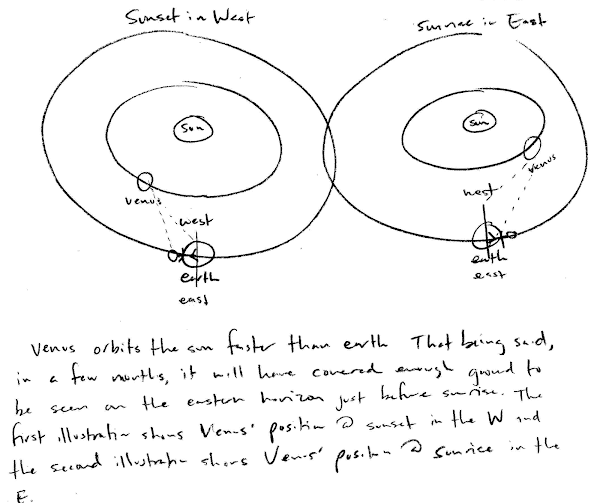 Sunset in West
Sunrise in East
sun
sun
venus
venus
west
west
earth
east
earth
east
Venus orbits the sun faster than earth That being said,
in a few months, it will have covered enough ground to
be seen on the eastern horizon just before sunrise. The
first illustration shows Venus' position @ sunset in the W and
the second illustration shows Venus' position @ sunrise in the
E.